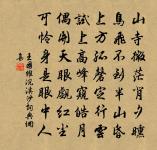 山寺微茫背夕曛
鳥飛不到半山昏
上方孤磬定行雲
試上高峰窺皓月
偶開天眼覷紅塵
可憐身是眼中人
王國維浣溪沙詞